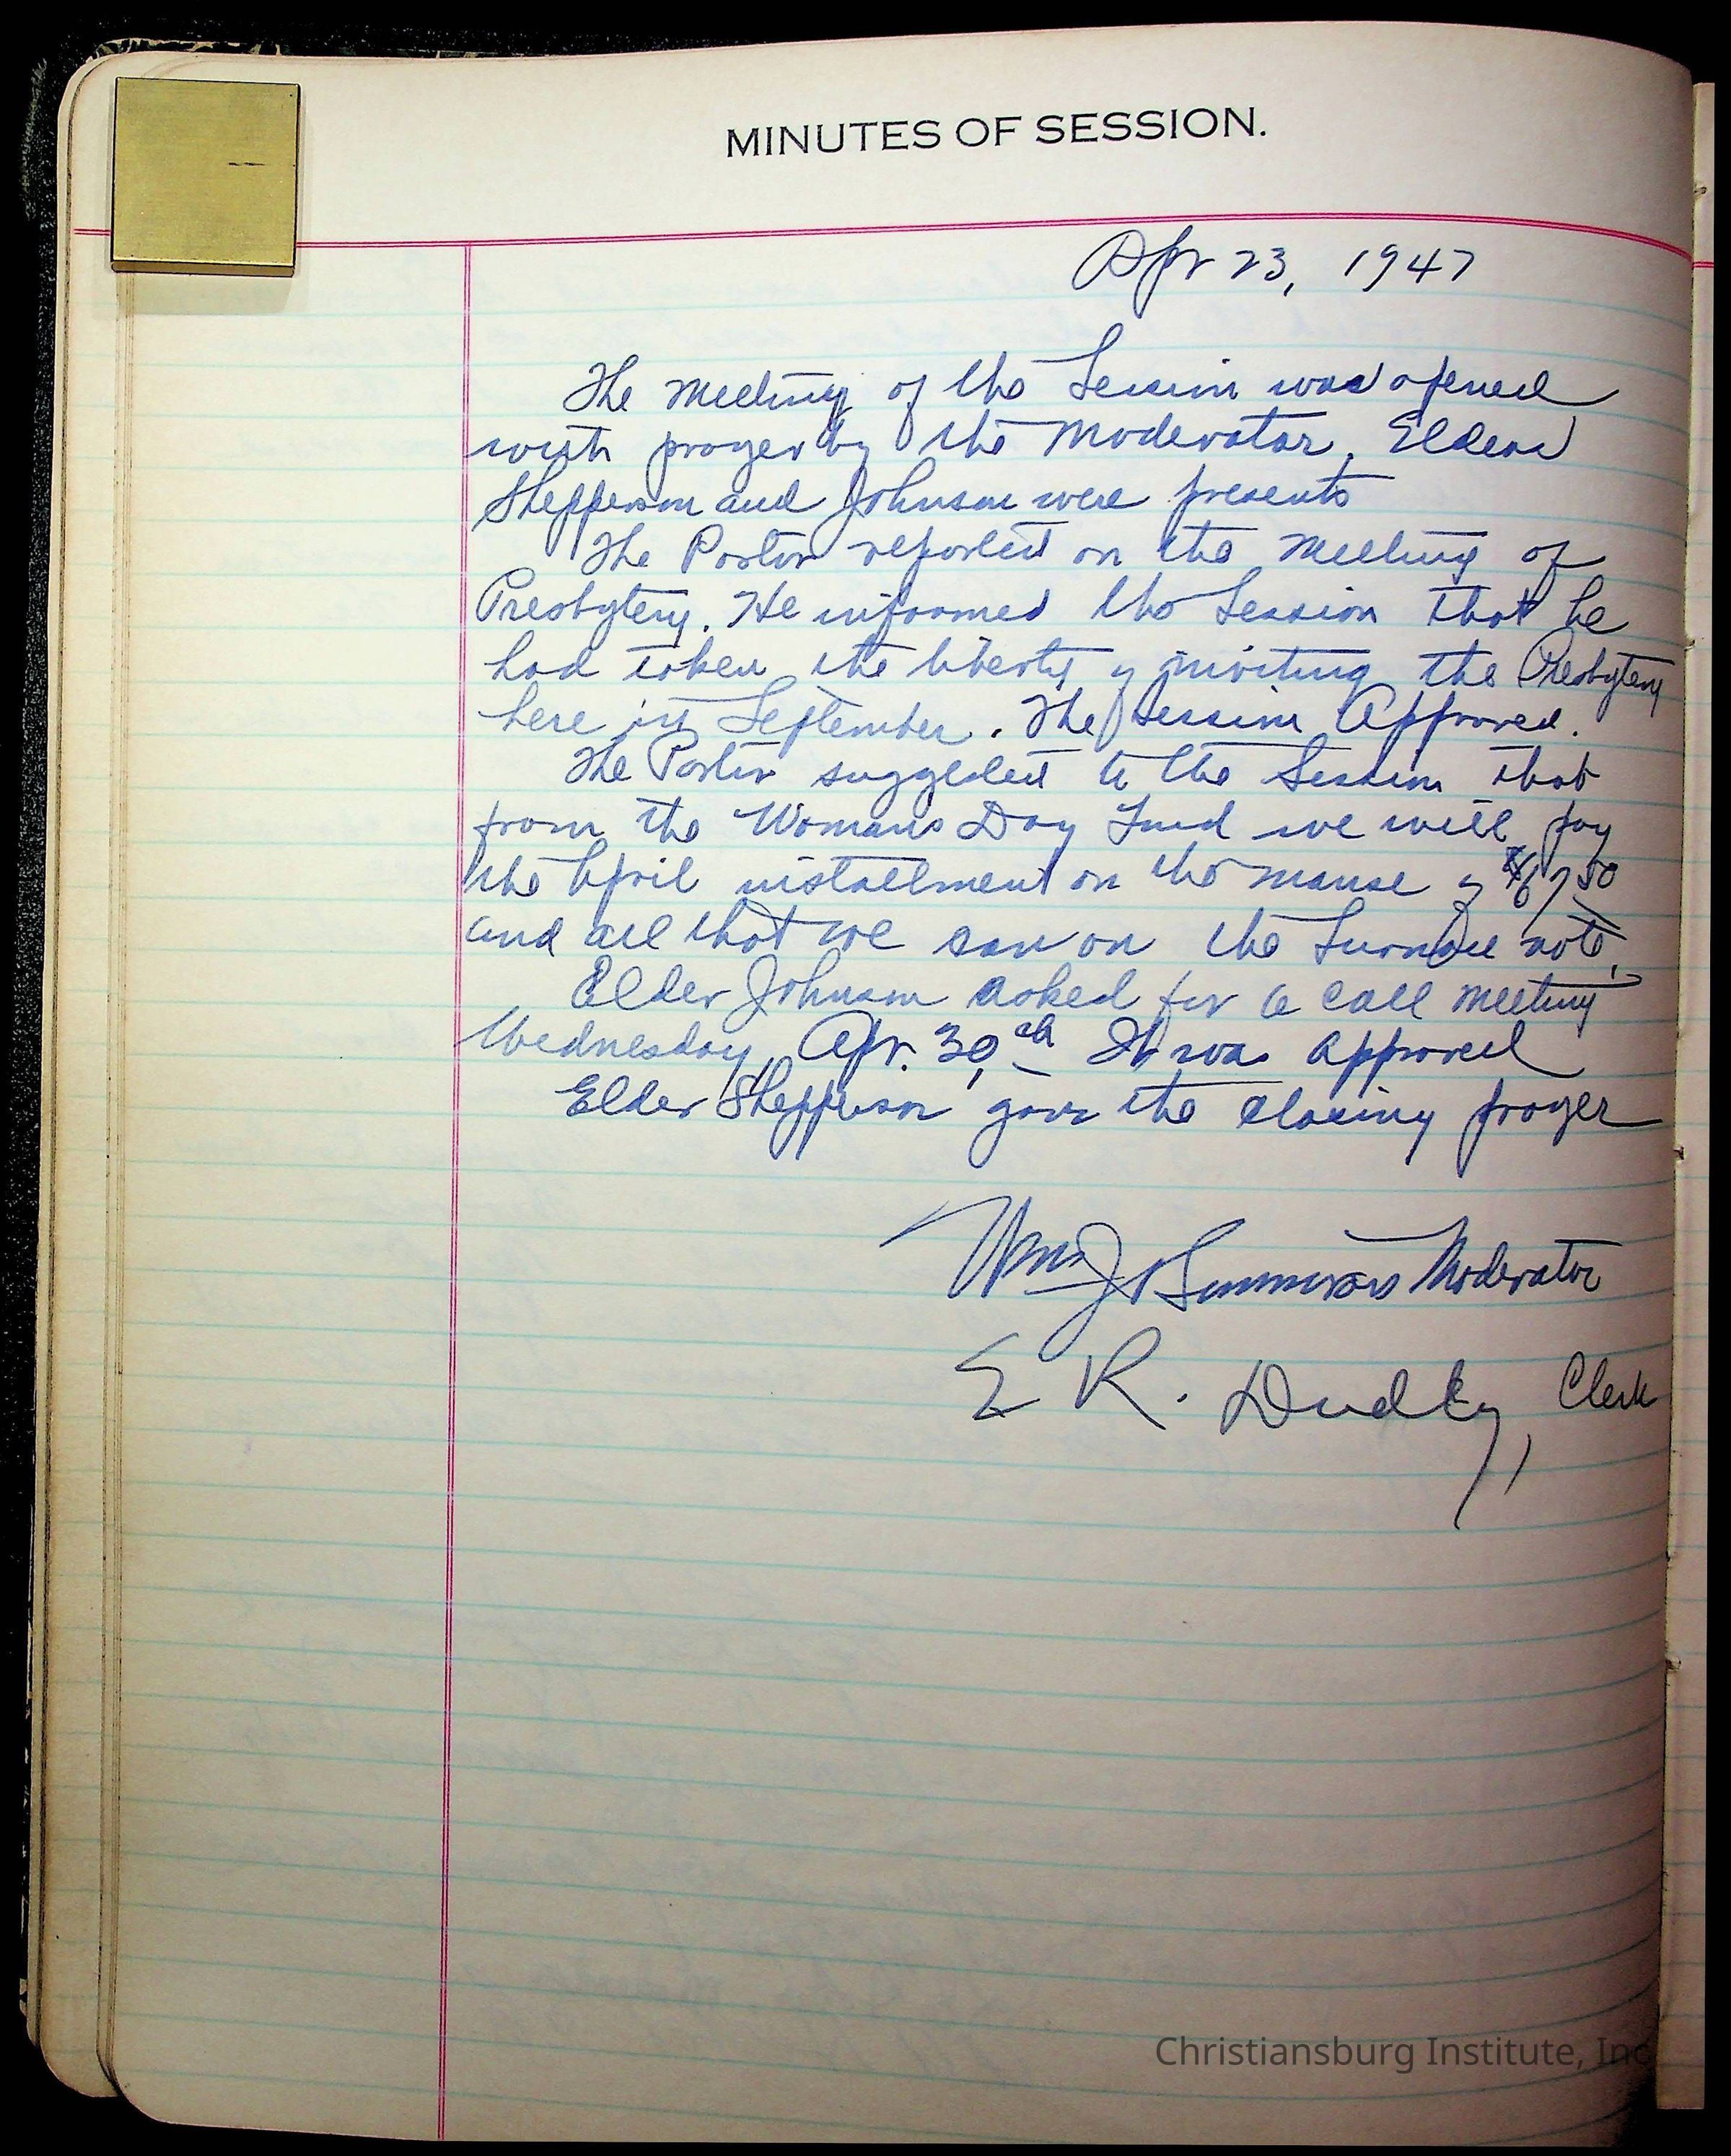 MINUTES OF SESSION.
Apr 23, 1947
The Meeting of the Session was opened
with prayer by the Moderator. Elders
Shepperson and Johnson were present
The Pastor reported on the Meeting of
Presbytery. He informed the Session that he
had taken the liberty of inviting the Presbytery
here in September. The Session Approved.
The Pastor suggested to the Session that
from the Womans Day Fund we will pay
the April installment on the manse of $67.50
and all that we can on the Furnace note.
Elder Johnson asked for a call meeting
Wednesday, Apr. 30, It was approved
Elder Shepperson gave the closing prayer
Wm J Simmons Moderator
E R. Dudley, Clerk
Christiansburg Institute, Inc